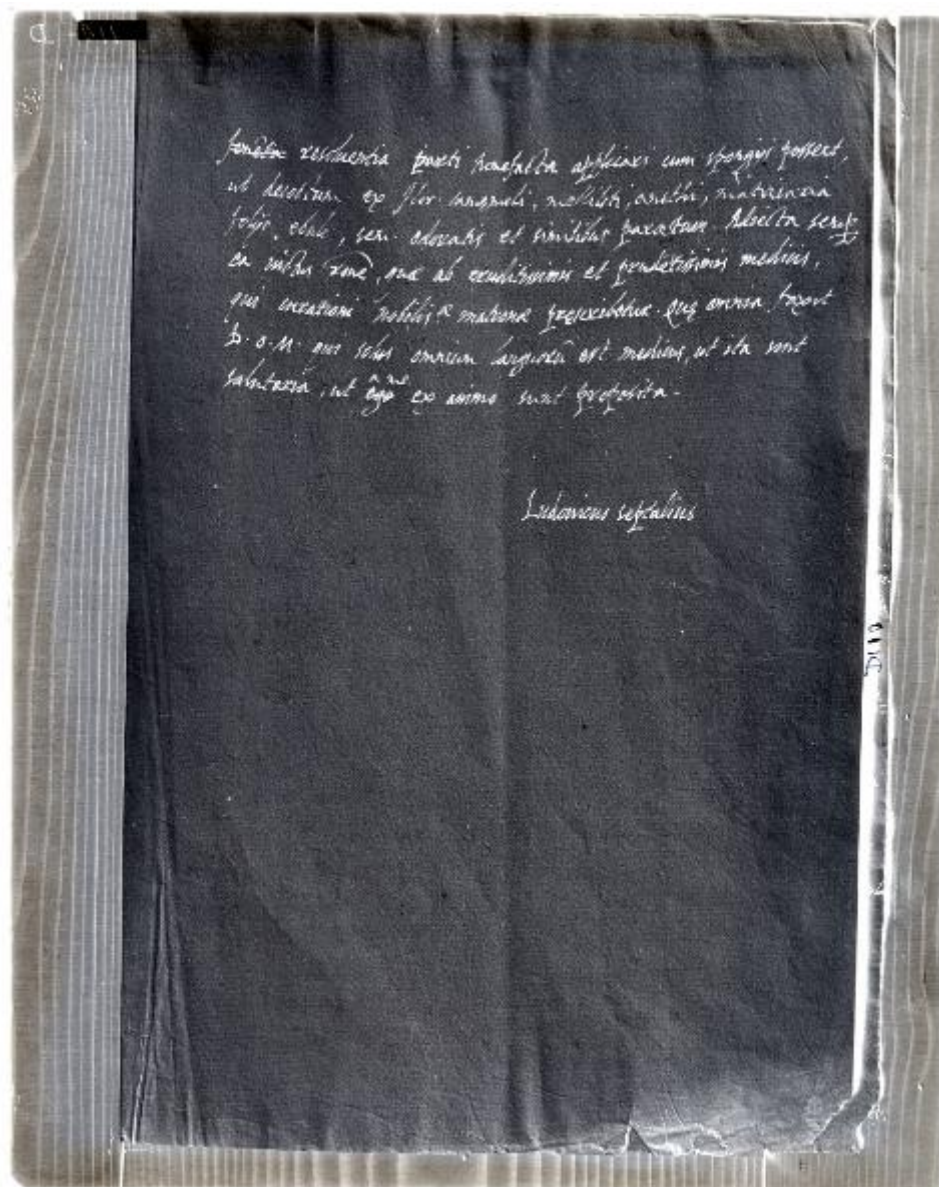 resoluentia parti tumefactae applicari cum spongijs possent,
ut decoctum ex flor. camomeli, meliloti, anethi, matricaria
folijs, ebuli, seu. odoratis et similibus paratum. Adiecta semp
ea victus rōne, quae ab eruditissimis et prudētissimis medicis,
qui curationi nobilis matronae prescribetur. Quę omnia faxit
D. O. M. qui solus omnium languorū est medicus, ut ita sint
salutaria, ut a me ex animo sunt proposita.
Ludouicus septalius